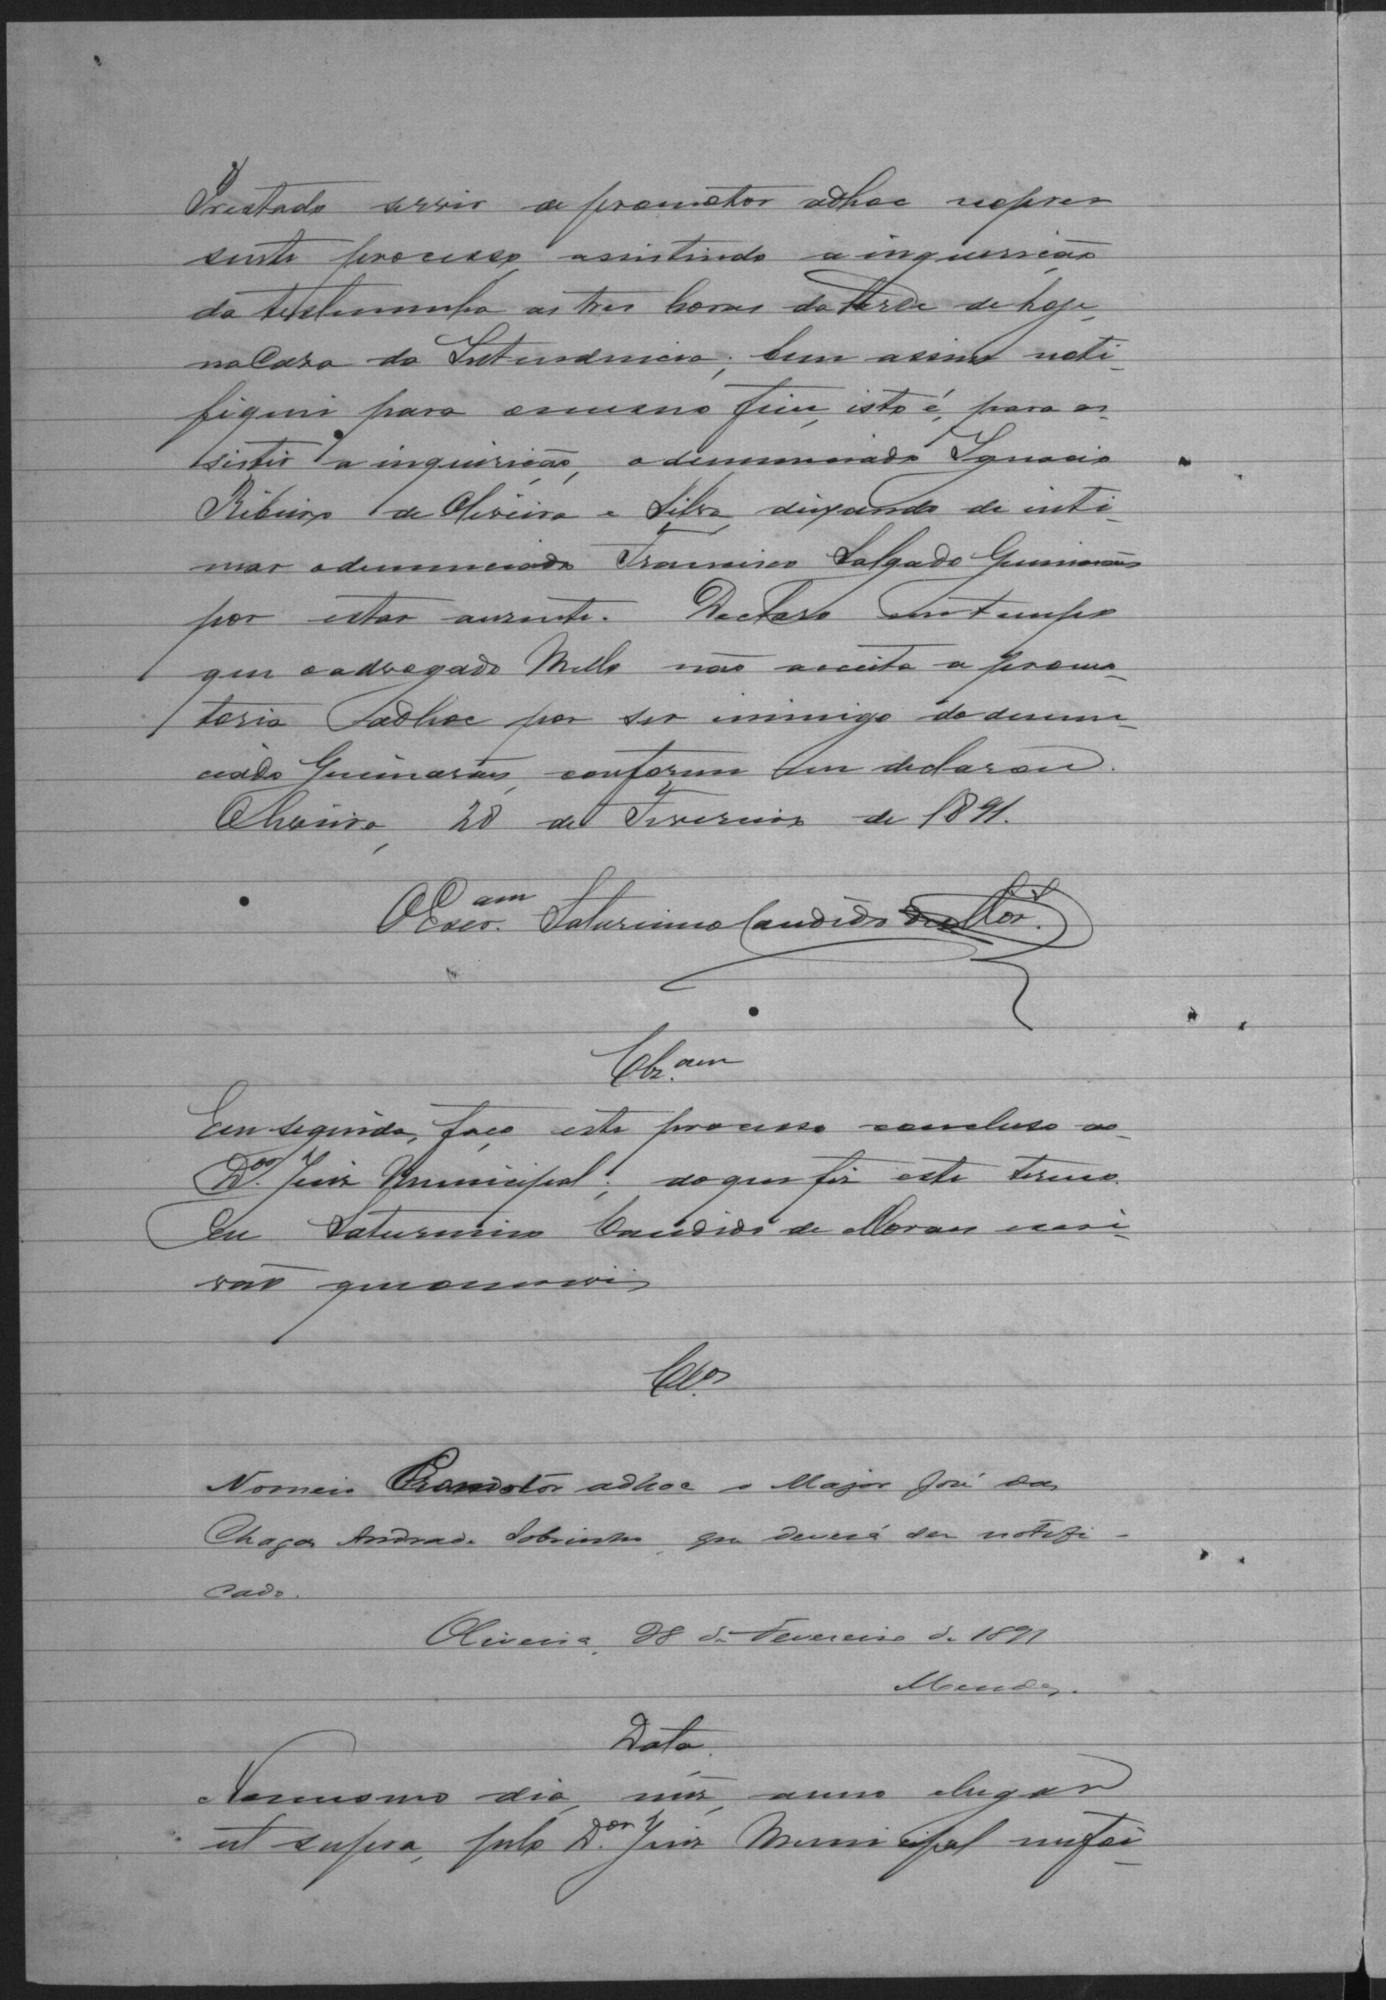 Prestado servir de promotor adhoc no pre-
sente processo, assistindo a inquirição
da testemunha as tres horas da tarde de hoje,
na Casa da Intendencia; bem assim noti-
fiquei para o mesmo fim, isto é, para as-
sistir a inquirição, o denunciado Ignacio
Ribeiro de Oliveira e Silva, deixando de inti-
mar o denunciado Francisco Salgado Guimarães
por estar ausente. Declaro em tempo
que o advogado Mello não acceita a promo-
toria adhoc por ser inimigo do denun-
ciado Guimarães, conforme me declarou.
Oliveira, 28 de Fevereiro de 1891.
O Escr.am Saturnino Candido de Mor.
Clz.am
Em seguida, faço este processo concluso ao
D.or Juiz Municipal; do que fiz este termo.
Eu Saturnino Candido de Moraes escri-
vão que o escrevi
Cl.os
Nomeio Promotor adhoc o Major José das
Chagas Andrade Sobrinho, que deverá ser notifi-
cado.
Oliveira, 28 de Fevereiro de 1891
Mendes.
Data.
No mesmo dia, mez, anno e lugar
ut supra, pelo D.or Juiz Municipal me foi